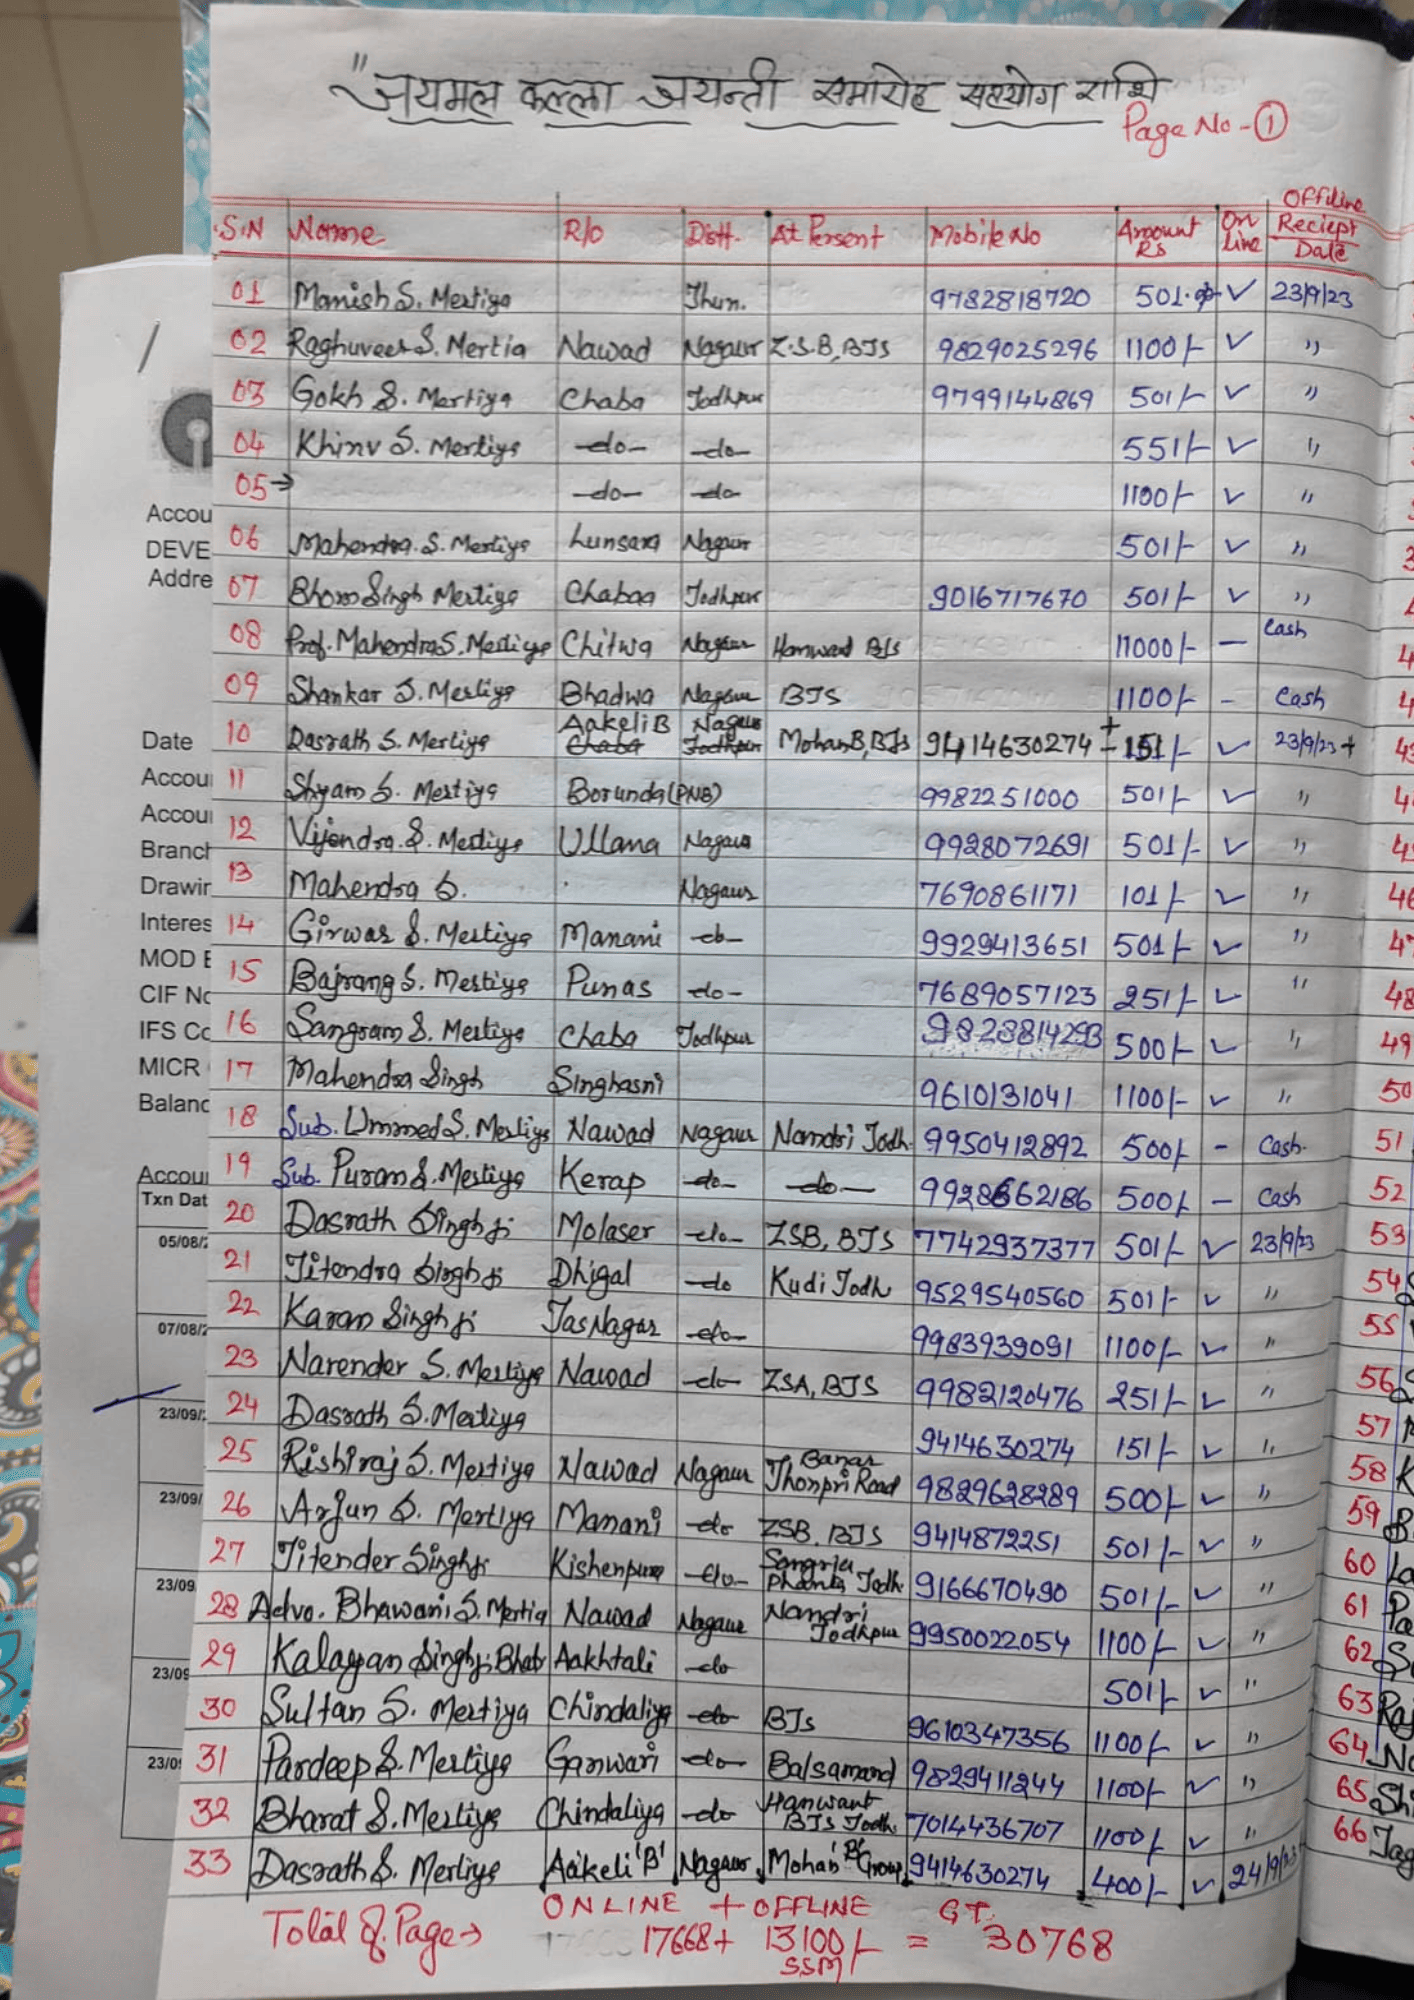 "जयमल कल्ला जयन्ती समारोह सहयोग राशि
Page No - 1
S.N Name R/o Distt. At Persent Mobile No Amount Rs On line Offiline Reciept Date
01 Manish S. Mertiya Jhun. 9782818720 501. ✓ 23/9/23
02 Raghuveer S. Mertia Nawad Nagaur Z.S.B, BJS 9829025296 1100/- ✓ "
03 Gokh S. Mertiya Chaba Jodhpur 9799144869 501/- ✓ "
04 Khinv S. Mertiya -do- -do- 551/- ✓ "
05 → -do- -do- 1100/- ✓ "
06 Mahendra. S. Mertiya Lunsara Nagaur 501/- ✓ "
07 Bhom Singh Mertiya Chabaa Jodhpur 9016717670 501/- ✓ "
08 Prof. Mahendra S. Mertiya Chitwa Nagaur Hanwant BJS 11000/- — Cash
09 Shankar S. Mertiya Bhadwa Nagaur BJS 1100/- - Cash
10 Dasrath S. Mertiya Aakeli B Chaba Nagaur Jodhpur Mohan B, BJs 9414630274 + 151/- ✓ 23/9/23 +
11 Shyam S. Mertiya Borunda (PNB) 9982251000 501/- ✓ "
12 Vijendra. S. Mertiya Ullana Nagaur 9928072691 501/- ✓ "
13 Mahendra S. Nagaur 7690861171 101/- ✓ "
14 Girwar S. Mertiya Manani -do- 9929413651 501/- ✓ "
15 Bajrang S. Mertiya Punas -do- 7689057123 251/- ✓ "
16 Sangram S. Mertiya Chaba Jodhpur 9828814293 500/- ✓ "
17 Mahendra Singh Singhasni 9610131041 1100/- ✓ "
18 Sub. Ummed S. Mertiya Nawad Nagaur Nandri Jodh. 9950412892 500/- - Cash.
19 Sub. Puran S. Mertiya Kerap -do- -do- 9928662186 500/- - Cash
20 Dasrath Singh ji Molaser -do- ZSB, BJS 7742937377 501/- ✓ 23/9/23
21 Jitendra Singh ji Dhigal -do Kudi Jodh 9529540560 501/- ✓ "
22 Karan Singh ji JasNagar -do- 9983939091 1100/- ✓ "
23 Narender S. Mertiya Nawad -do- ZSA, BJS 9982120476 251/- ✓ "
24 Dasrath S. Mertiya 9414630274 151/- ✓ "
25 Rishiraj S. Mertiya Nawad Nagaur Banar Jhonpri Road 9829628289 500/- ✓ "
26 Arjun S. Mertiya Manani -do ZSB. BJS 9414872251 501/- ✓ "
27 Jitender Singhji Kishenpura -do- Sangria Phanta Jodh. 9166670490 501/- ✓ "
28 Advo. Bhawani S. Mertia Nawad Nagaur Nandri Jodhpur 9950022054 1100/- ✓ "
29 Kalayan Singhji Bhati Aakhtali -do 501/- ✓ "
30 Sultan S. Mertiya Chindaliya -do BJs 9610347356 1100/- ✓ "
31 Pardeep S. Mertiya Ganwari -do- Balsamand 9829411244 1100/- ✓ "
32 Bharat S. Mertiya Chindaliya -do Hanwant BJS Jodh. 7014436707 1100/- ✓ "
33 Dasrath S. Mertiya Aakeli 'B' Nagaur Mohan 'B' Group 9414630274 400/- ✓ 24/9/23
ONLINE + OFFLINE GT.
Total of Page → 17668 + 13100/- = 30768
SSM
Accou
DEVE
Addre
Date
Accou
Accou
Branch
Drawin
Interes
MOD B
CIF No
IFS Co
MICR
Balanc
Accou
Txn Dat
05/08/2
07/08/2
23/09/2
23/09/
23/09
23/09
23/09
46
47
48
49
50
51
52
53
54
55
56
57
58
59
60
61
62
63
64
65
66